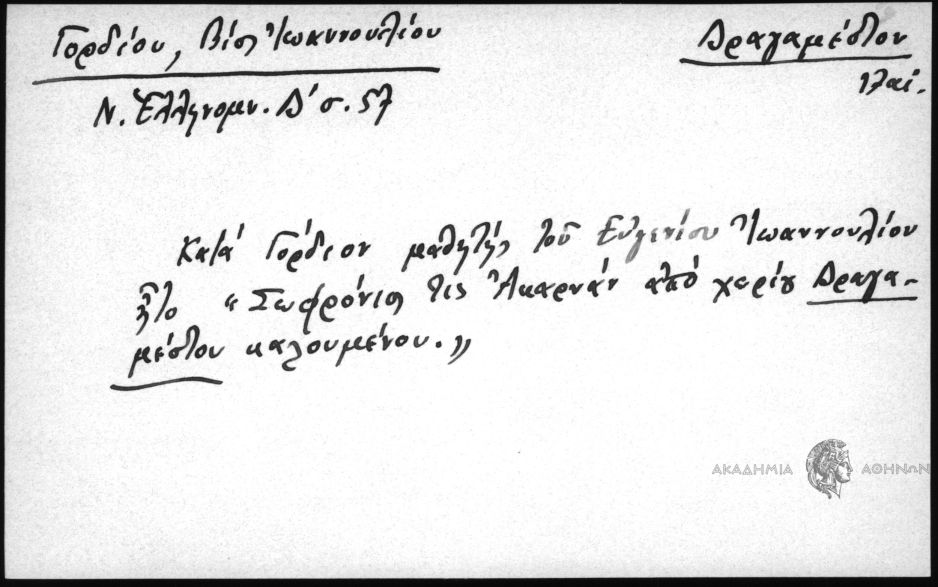 Γορδίου, Βίος Ἰωαννουλίου
Δραγαμέστον
17 αἰ.
Ν. Ἑλληνομν. Δ' σ. 57
Κατά Γόρδιον μαθητής τοῦ Εὐγενίου Ἰωαννουλίου
ἦτο "Σωφρόνιος τις Ἀκαρνάν ἀπό χωρίου Δραγα-
μέστου καλουμένου."
ΑΚΑΔΗΜΙΑ ΑΘΗΝΩΝ